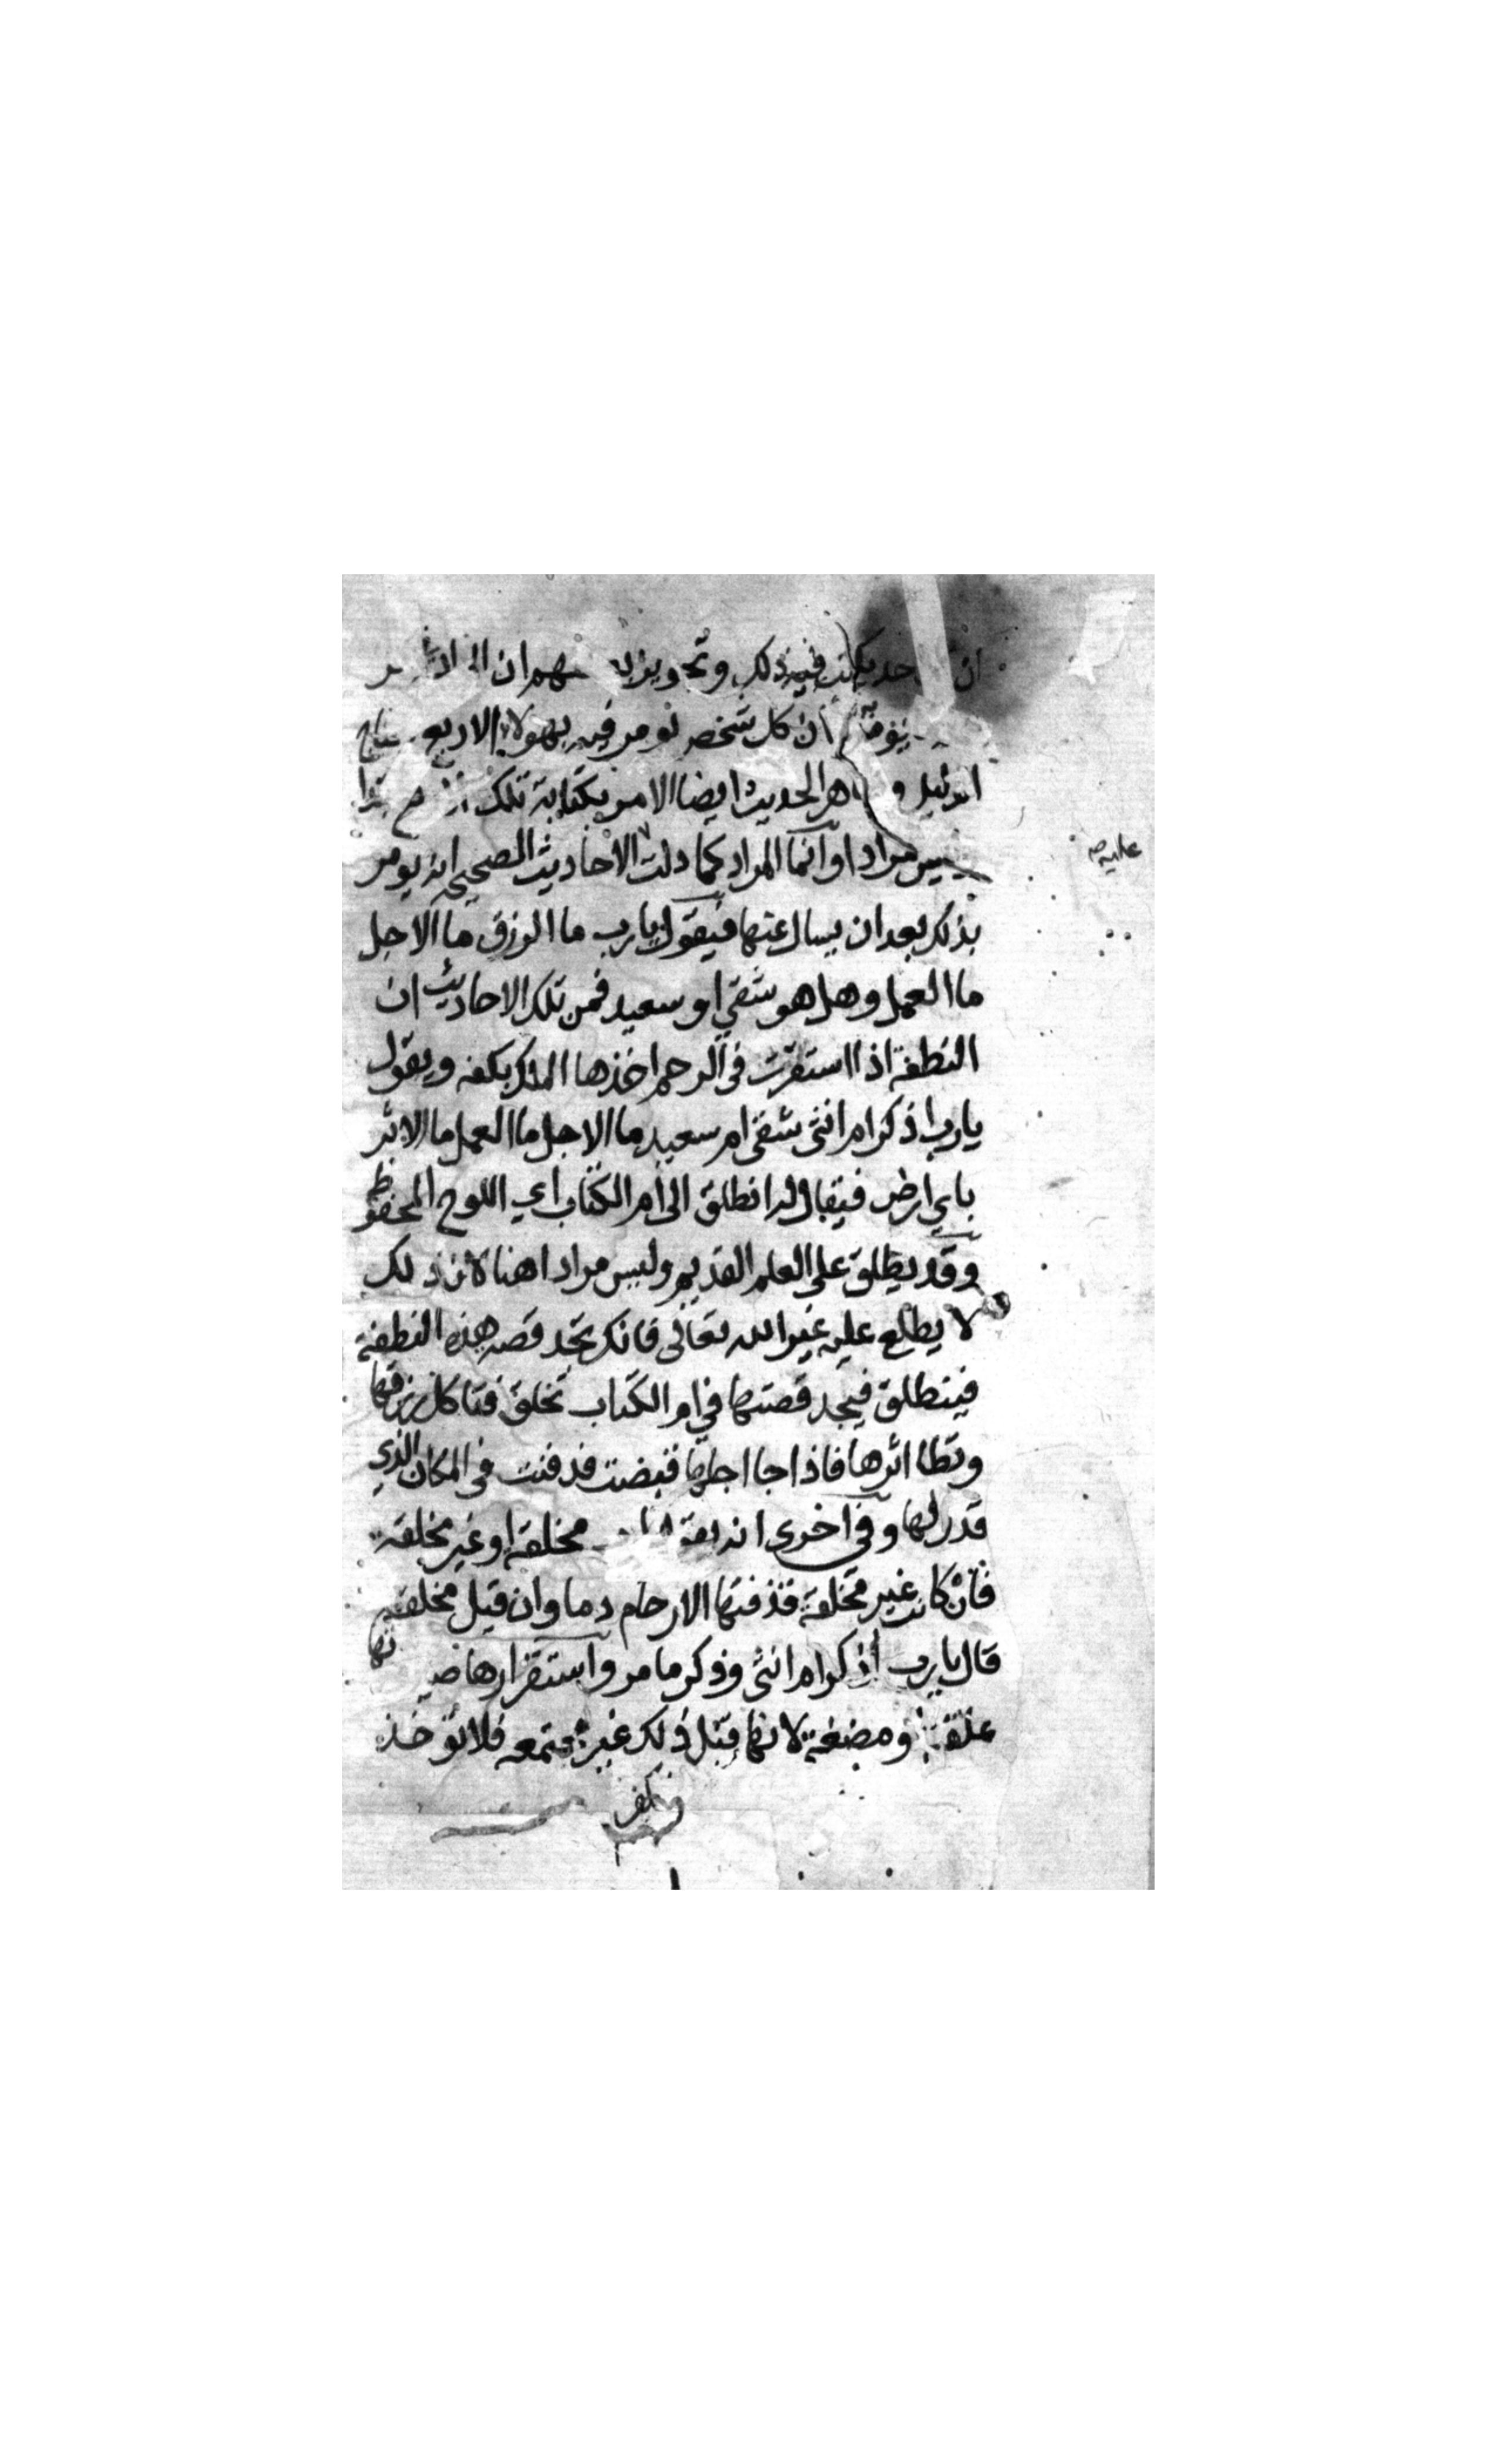 حد يكتب فيه ذلك وتجويز ان
يوما ان كل شخص يومر فيه بهولاء الاربع
الحديث ايضا الامر بكتابة تلك
مرادا وانما المراد كما دلت الاحاديث الصحيحة انه يومر
عليه
بذلك بعد ان يسال عنها فيقول يارب ما الرزق ما الاجل
ما العمل وهل هو شقي او سعيد فمن تلك الاحاديث ان
النطفة اذا استقرت في الرحم اخذها الملك بكفه ويقول
يارب اذكر ام انثى شقي ام سعيد ما الاجل ما العمل ما الاثر
باي ارض فيقال له انطلق الى ام الكتاب اي اللوح المحفوظ
وقد يطلق على العلم القديم وليس مرادا هنا لان ذلك
لا يطلع عليه غير الله تعالى فانك تجد قصه هذه النطفة
فينطلق فيجد قصتها في ام الكتاب تخلق فتاكل رزقها
وتطا اثرها فاذا جا اجلها قبضت فدفنت في المكان الذي
قدر لها وفي اخرى مخلقة او غير مخلقة
فان كانت غير مخلقة قذفتها الارحام دما وان قيل مخلقة
قال يارب اذكر ام انثى وذكر ما مر واستقرارها
علقة ومضغة لانها قبل ذلك غير مجتمعه فلا تؤخذ